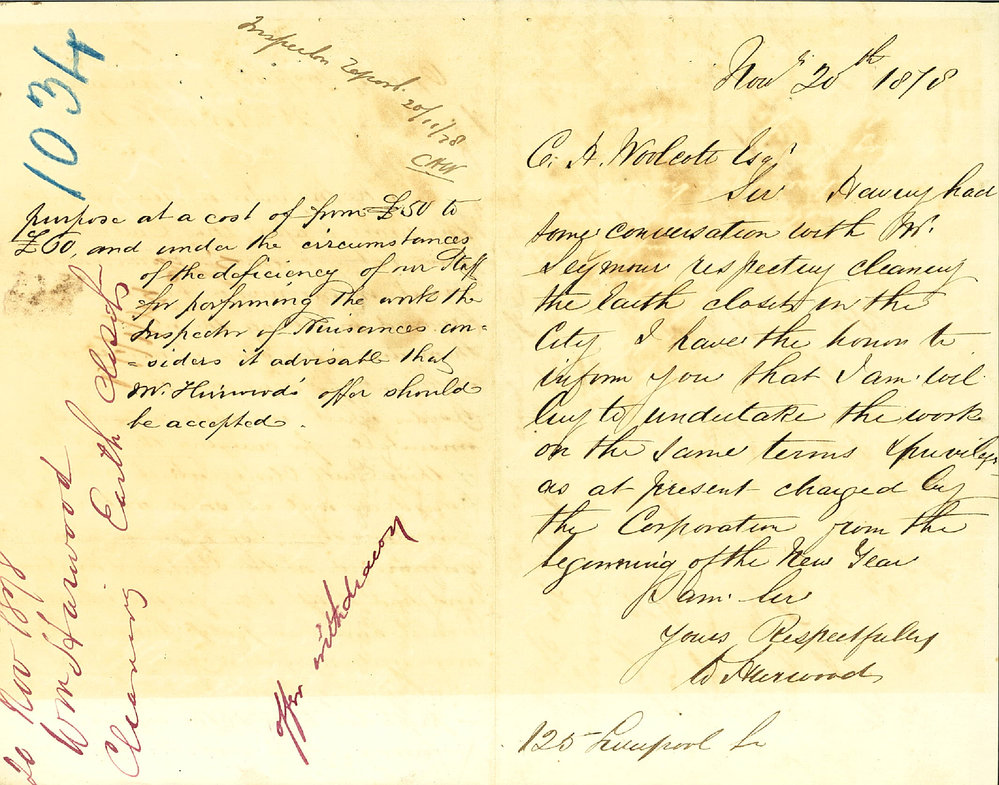 1034
Inspector Report
20/11/78
CHW
purpose at a cost of from £50 to
£60, and under the circumstances
of the deficiency of our Staff
for performing the work the
Inspector of Nuisances con-
-siders it advisable that
Mr. Hurwood's offer should
be accepted.
offer withdrawn
20 Nov 1878
Wm Hurwood
Cleaning Earth Closets
Novr 20th 1878
C. H. Woolcott Esqr
Sir Having had
some conversation with Mr.
Seymour respecting cleaning
the Earth closets in the
City I have the honor to
inform you that I am wil
ling to undertake the work
on the same terms & privileges
as at present charged by
the Corporation from the
beginning of the New Year
I am Sir
Yours Respectfully
W Hurwood
125 Liverpool St